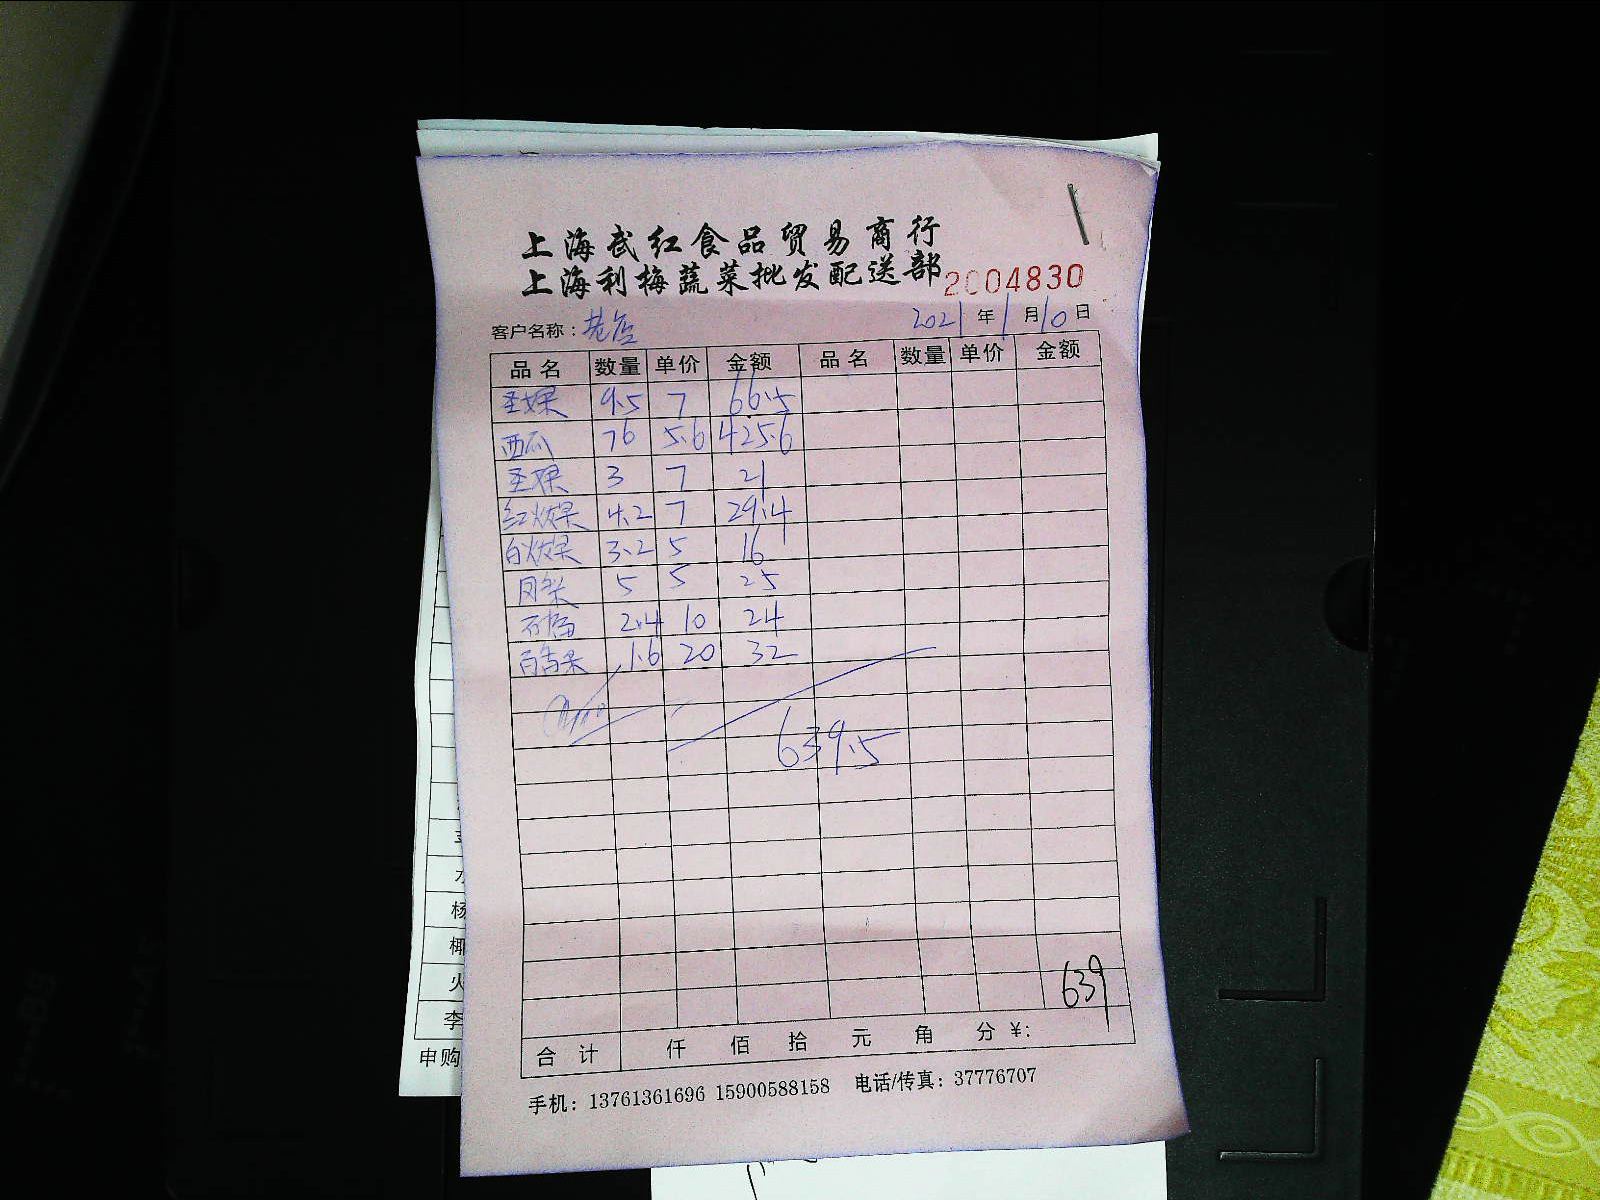 上海武红食品贸易商行
上海利梅蔬菜批发配送部 2004830
客户名称：老店 2021年1月10日
品名 数量 单价 金额 品名 数量 单价 金额
圣女果 9.5 7 66.5
西瓜 76 5.6 425.6
圣女果 3 7 21
红火龙果 4.2 7 29.4
白火龙果 3.2 5 16
凤梨 5 5 25
石榴 2.4 10 24
百香果 1.6 20 32
639.5
639
合计 仟 佰 拾 元 角 分 ¥:
手机：13761361696 15900588158 电话/传真：37776707
杨
椰
火
李
申购